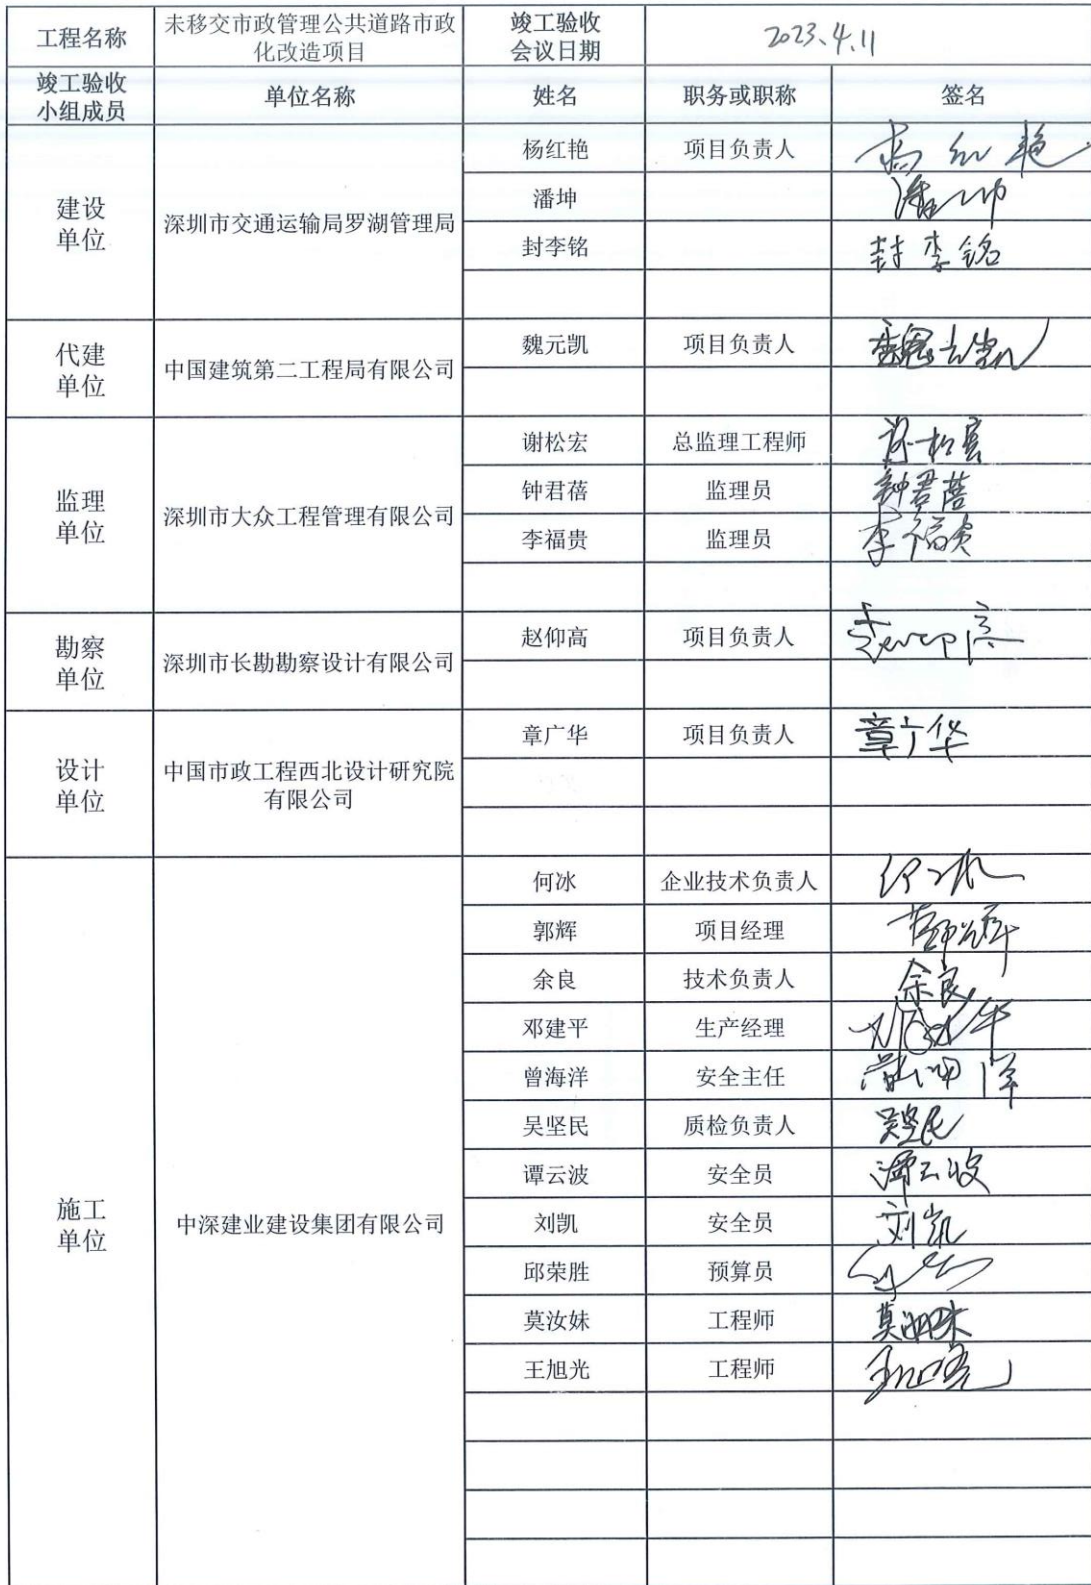 工程名称
未移交市政管理公共道路市政
化改造项目
竣工验收
会议日期
2023、4、11
竣工验收
小组成员
单位名称
姓名
职务或职称
签名
建设
单位
深圳市交通运输局罗湖管理局
杨红艳
项目负责人
杨红艳
潘坤
潘坤
封李铭
封李铭
代建
单位
中国建筑第二工程局有限公司
魏元凯
项目负责人
魏元凯
监理
单位
深圳市大众工程管理有限公司
谢松宏
总监理工程师
钟君蓓
监理员
钟君蓓
李福贵
监理员
李福贵
勘察
单位
深圳市长勘勘察设计有限公司
赵仰高
项目负责人
赵仰高
设计
单位
中国市政工程西北设计研究院
有限公司
章广华
项目负责人
章广华
施工
单位
中深建业建设集团有限公司
何冰
企业技术负责人
郭辉
项目经理
余良
技术负责人
余良
邓建平
生产经理
曾海洋
安全主任
曾海洋
吴坚民
质检负责人
吴坚民
谭云波
安全员
谭云波
刘凯
安全员
刘凯
邱荣胜
预算员
莫汝妹
工程师
莫汝妹
王旭光
工程师
王旭光